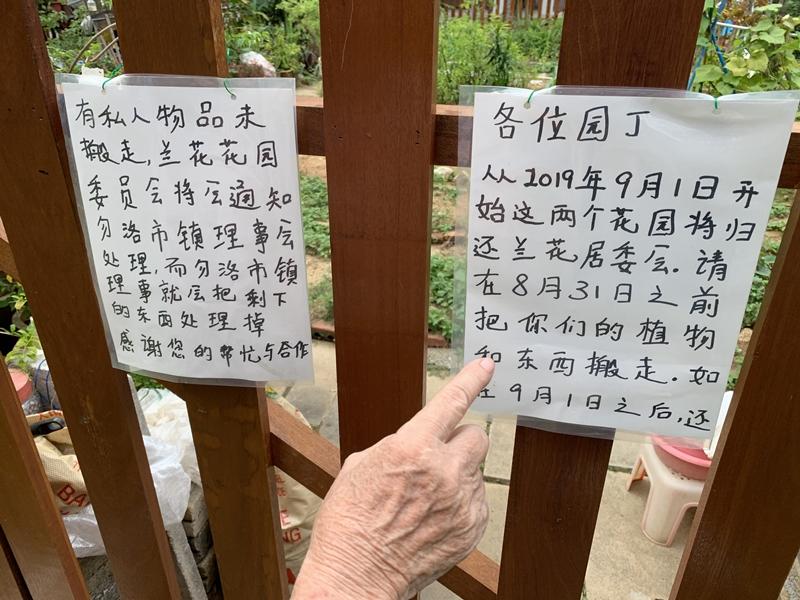 各位园丁
从2019年9月1日开
始这两个花园将归
还兰花居委会.请
在8月31日之前
把你们的植物
和东西搬走.如
在9月1日之后,还
有私人物品未
搬走,兰花花园
委员会将会通知
勿洛市镇理事会
处理,而勿洛市镇
理事就会把剩下
的东西处理掉
感谢您的帮忙与合作